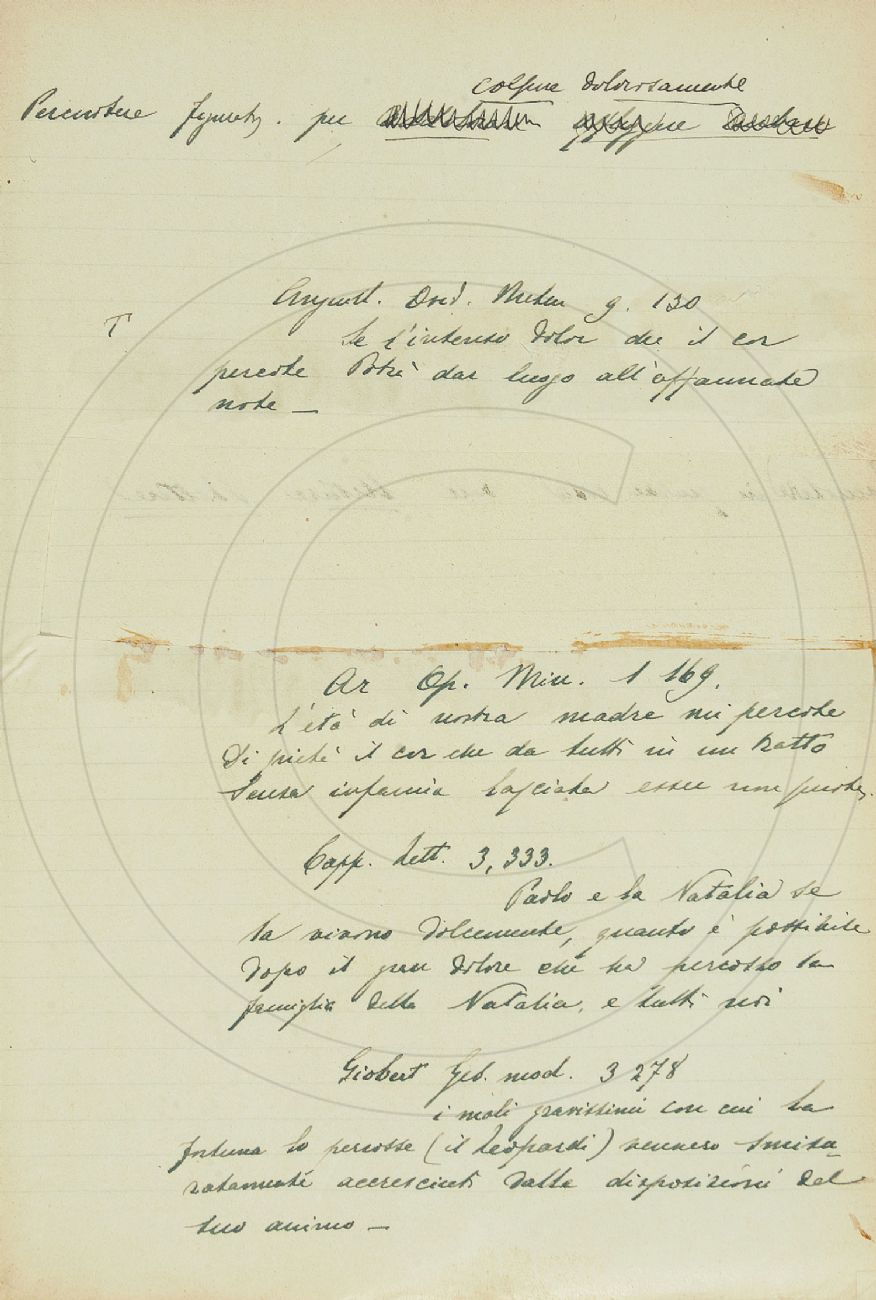 colpire dolorosamente
Percuotere figurat. per
Anguill. Ovid. Metam 9. 130
T
Se l'intenso dolor che il cor
percote Potrà dar luogo all'affannate
note —
Ar Op. Min. 1 169.
L'età di nostra madre mi percote
Di pietà il cor che da tutti in un tratto
Senza infamia lasciata esser non puote.
Capp. Lett. 3,333.
Paolo e la Natalia se
la vivono dolcemente, quanto è possibile
dopo il gran dolore che ha percosso la
famiglia della Natalia, e tutti noi
Giobert Ges. mod. 3 278
i mali gravissimi con cui la
fortuna lo percosse (il Leopardi) vennero smisu-
ratamente accresciuti dalle disposizioni del
suo animo —